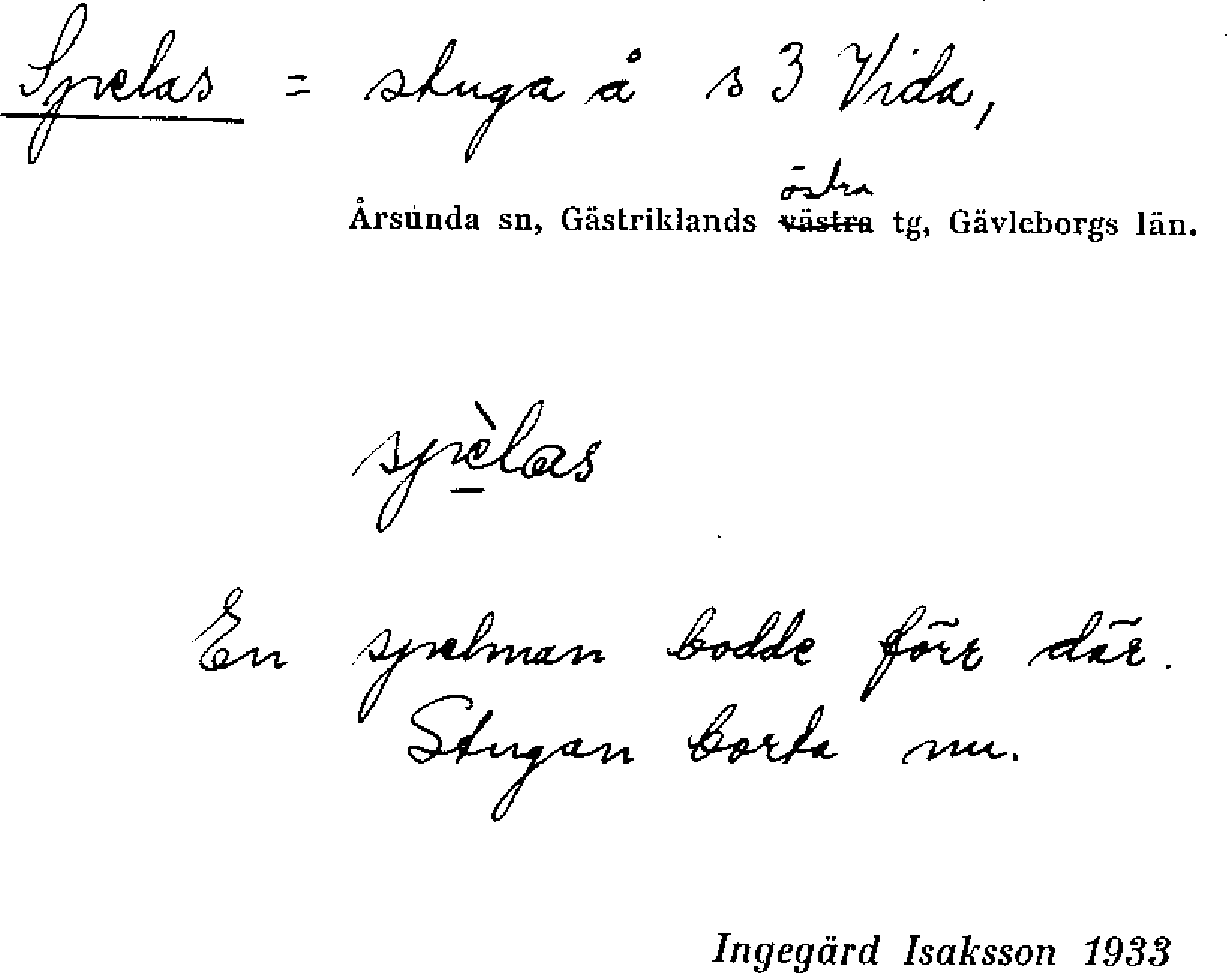 Spelas = stuga å s 3 Vida,
östra
Årsunda sn, Gästriklands västra tg, Gävleborgs län.
spè̱las
En spelman bodde förr där.
Stugan borta nu.
Ingegärd Isaksson 1933